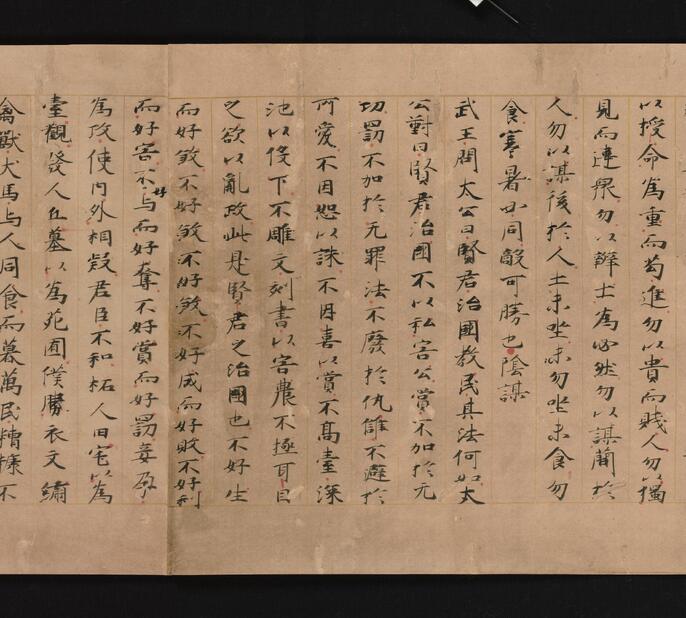 以授命為重而苟進勿以貴而賤人勿以獨
見而違衆勿以辯士為必然勿以謀簡於
人勿以謀後於人士未坐未勿坐未食勿
食寒暑必同敵可勝也陰謀
武王問太公曰賢君治國教民其法何如太
公對曰賢君治國不以私害公賞不加於无
功罰不加於无罪法不廢於仇讎不避於
所愛不因怒以誅不因喜以賞不高臺深
池以役下不雕文刻書以害農不極耳目
之欲以亂政此是賢君之治國也不好生
而好煞不好煞不好煞不好成而好敗不好利
而好害不好与而好奪不好賞而好罰妾孕
為政使內外相疑君臣不和柘人田宅以為
臺觀發人丘墓以為苑囿僕勝衣文繡
禽獸犬馬与人同食而墓萬民糟糠不